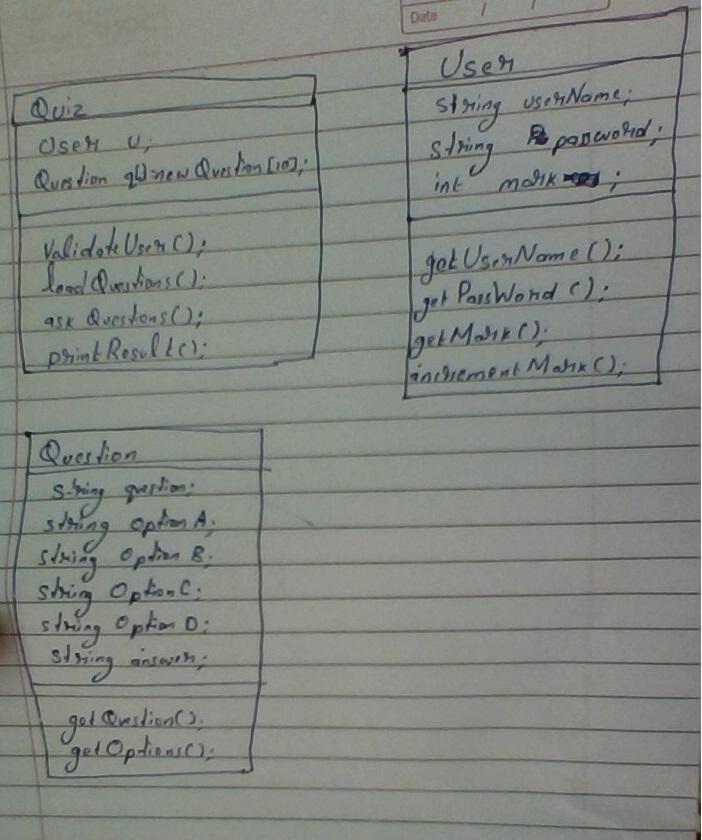 Date / /
Quiz
User u;
Question q[]=new Question[10];
validateUser();
loadQuestions();
ask Questions();
printResult();
User
string userName;
string password;
int mark ;
getUserName();
getPassWord ();
getMark();
incrementMark();
Question
string question;
string Option A;
string Option B;
string Option C;
string Option D;
string answer;
getQuestion();
getOptions();